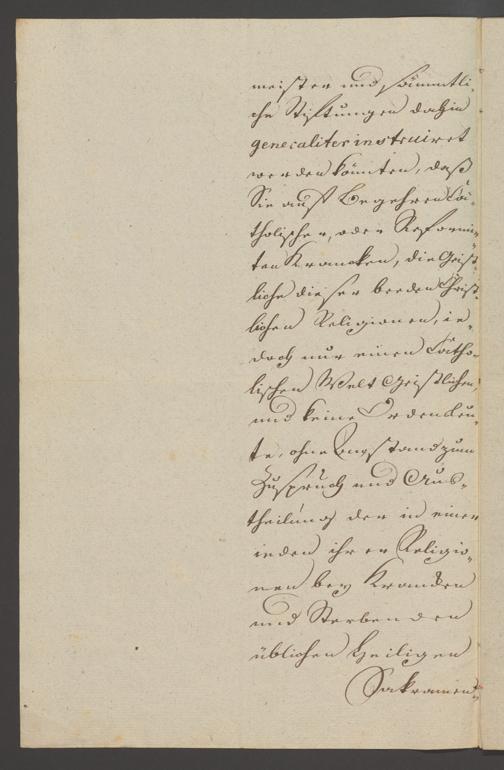 meister und sämmtli-
che Stiftungen dahin
generaliter instruiret
werden könnten, daß
Sie auf Begehren Ca-
tholischer, oder Reformir-
ten Krancken, die Geist-
liche dieser beeden Christ-
lichen Religionen, ie-
doch nur einen Catho-
lischen Welt Geistlichen,
und keine Ordensleu-
te, ohne Anstand zum
Zuspruch und Aus-
theilung der in einer
ieden ihrer Religio-
nen bey Krancken
und Sterbenden
üblichen Heiligen
Sakramen-